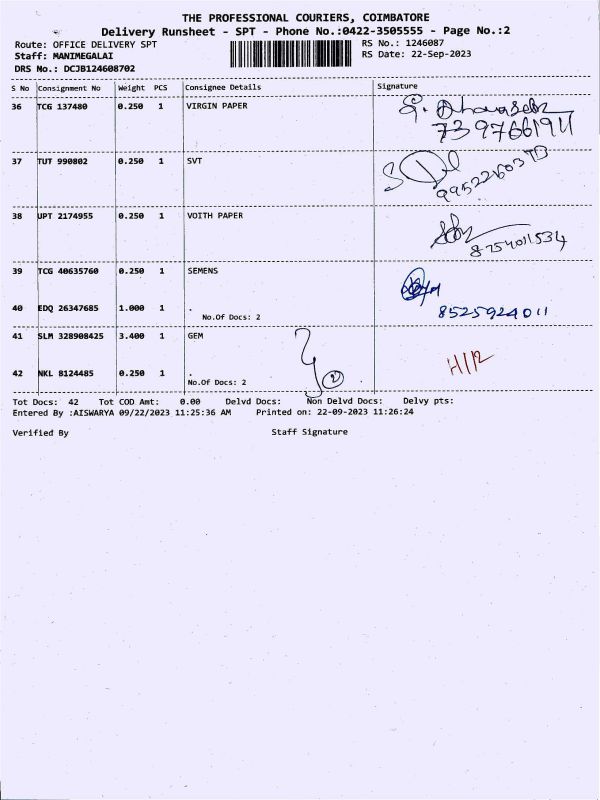 THE PROFESSIONAL COURIERS, COIMBATORE
Delivery Runsheet - SPT - Phone No.:0422-3505555 - Page No.:2
Route: OFFICE DELIVERY SPT RS No.: 1246087
Staff: MANIMEGALAI RS Date: 22-Sep-2023
DRS No.: DCJB124608702
S No Consignment No Weight PCS Consignee Details Signature
36 TCG 137480 0.250 1 VIRGIN PAPER
7397661911
37 TUT 990802 0.250 1 SVT
38 UPT 2174955 0.250 1 VOITH PAPER
8754011534
39 TCG 40635760 0.250 1 SEMENS
40 EDQ 26347685 1.000 1 . 8525924011
No.Of Docs: 2
41 SLM 328908425 3.400 1 GEM
42 NKL 8124485 0.250 1 . 2
No.Of Docs: 2
Tot Docs: 42 Tot COD Amt: 0.00 Delvd Docs: Non Delvd Docs: Delvy pts:
Entered By :AISWARYA 09/22/2023 11:25:36 AM Printed on: 22-09-2023 11:26:24
Verified By Staff Signature